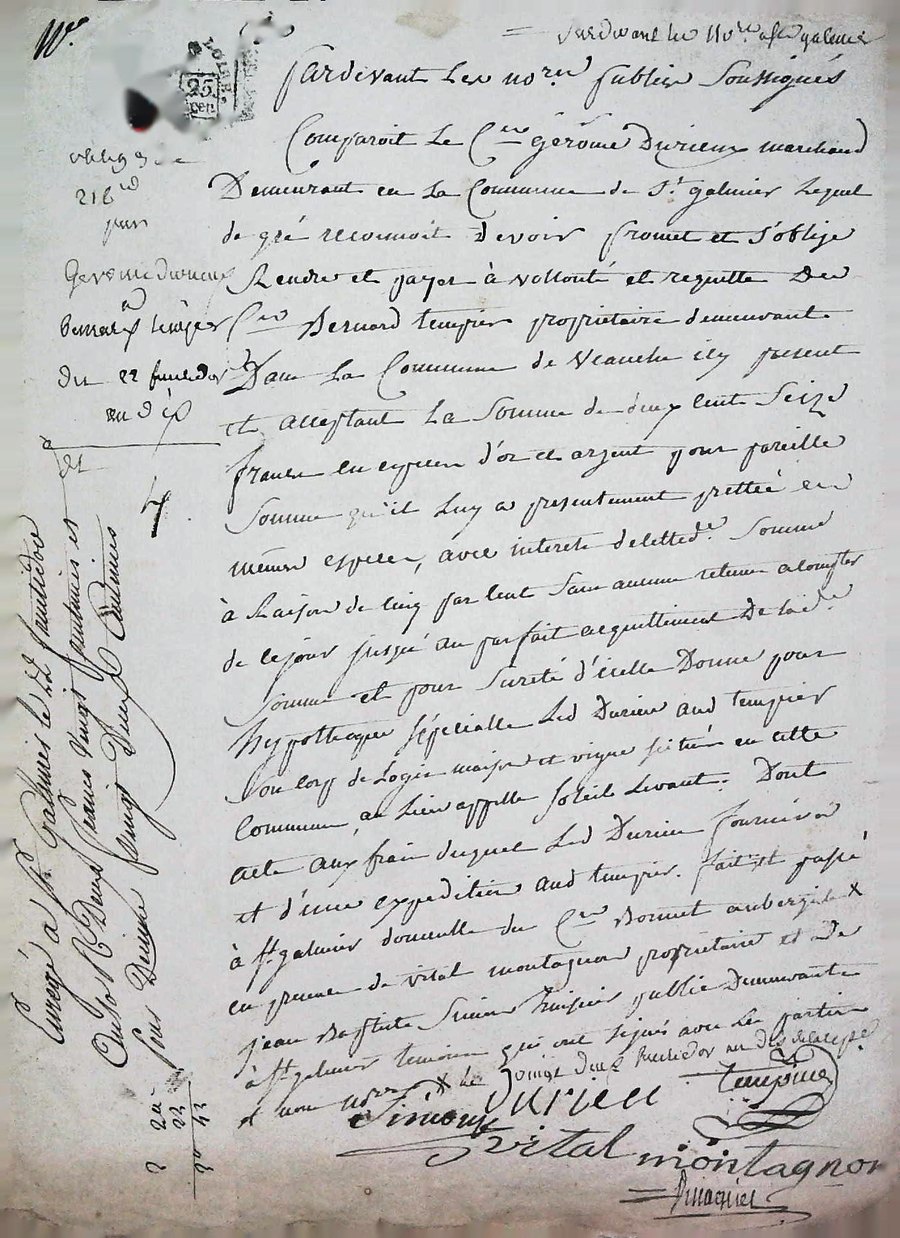 Nº
LOIRE
25
cen.
pardevant les no.res publics Soussignés
Comparoit Le C.en gérôme Durieux marchand
Demeurant en La Commune de St galmier Lequel
de gré reconnoit devoir promet et s'oblige
Rendre et payer à vollonté et requette Du
C.en Bernard tempier propriétaire demeurant
Dans La Commune de Veauche icy present
et acceptant La Somme de deux cent Seize
francs en espèces d'or et argent pour pareille
Somme qu'il Luy a presentement prettée en
mêmes espèces, avec interets de lettd.e Somme
à Raison de cinq par cent Sans aucune retenue a compter
de ce jour jusqu'au parfait acquittement De lad.e
Somme et pour Sureté d'icelle Donne pour
hypotheque spécialle Led Durieu aud tempier
Son corps de Logis maison et vigne scitués en cette
Commune, au Lieu appellé Soleil Levant. Dont
acte aux frais duquel Led Durieu fournira
et d'une expedition aud tempier. fait et passé
à St galmier domicille du C.en Bonnet aubergiste X
en presence de vital montagnon propriétaire et de
jean Baptiste Simon huissier public Demeurants
à St galmier temoins qui ont signés avec Les parties
et nous no.res X Le vingt deux fructidor an dix
Durieu
tempier
Simon
vital montagnon
216
pour
Gerome durieux
à
bernard tempier
Du 22 fructidor
an dix
Enregé à St Galmier le 22 fructidor
an 10 R Deux francs vingt centimes et
pour Decime vingt Deux Centimes
2 20
22
2 42